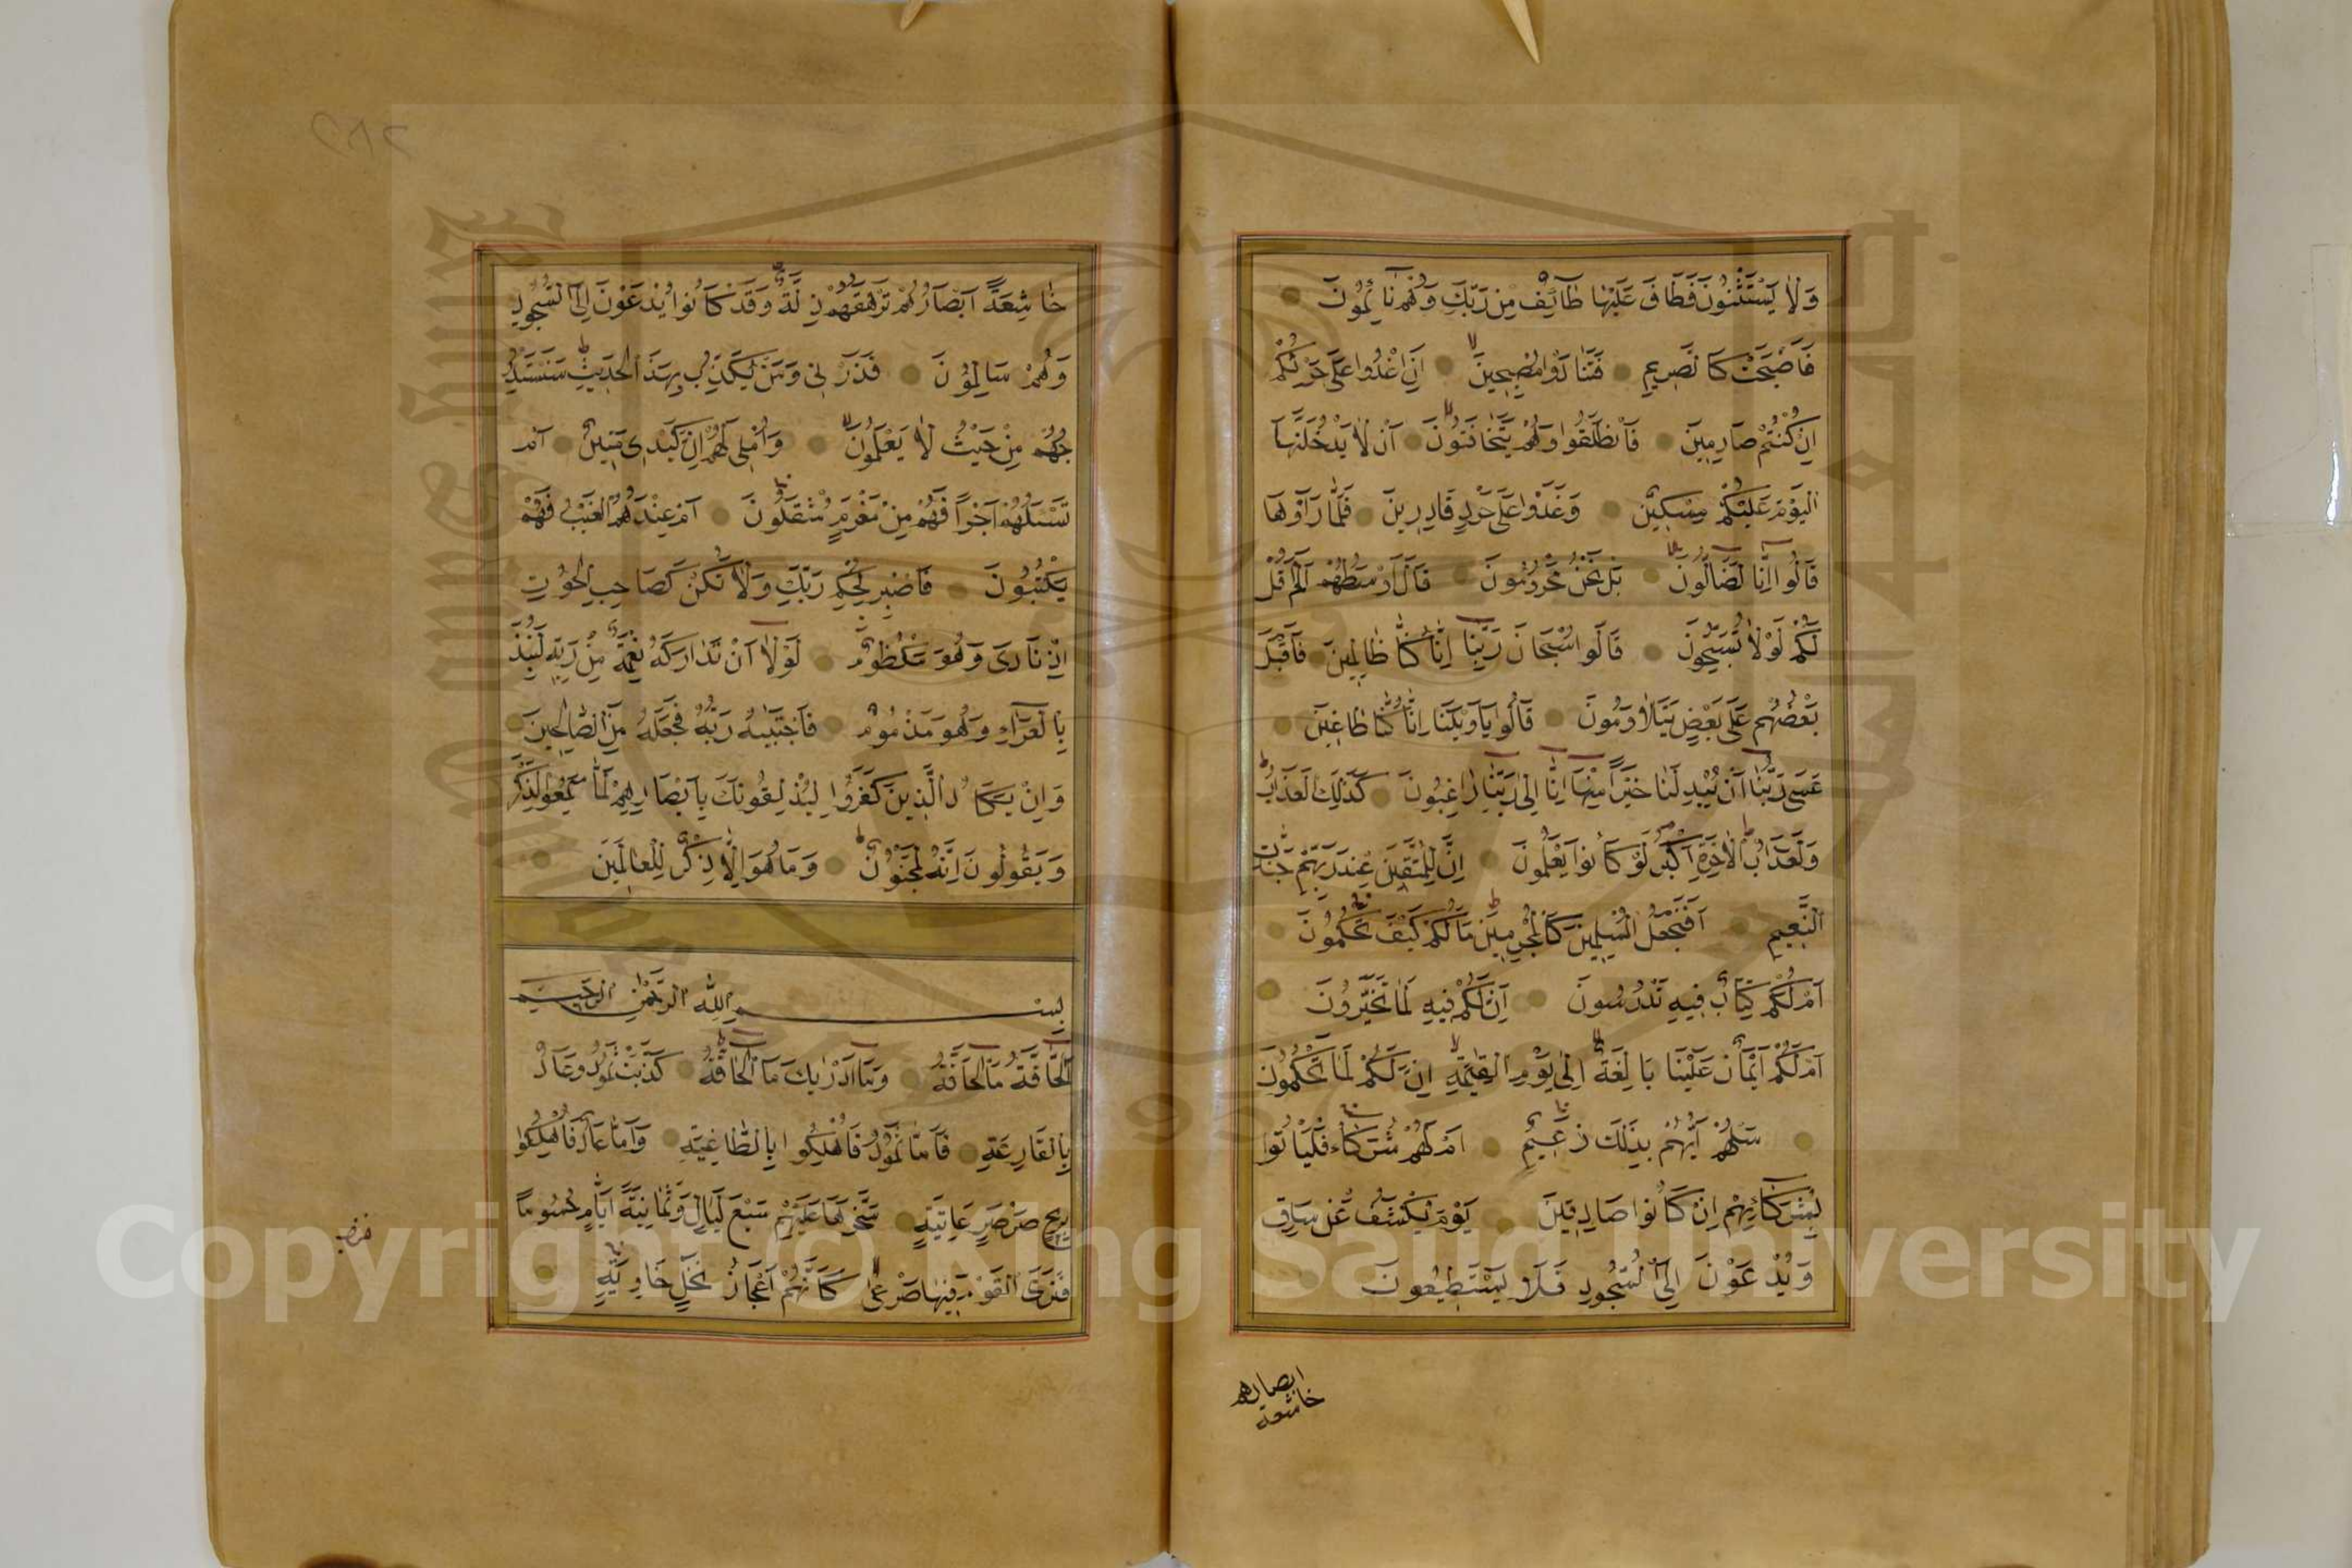 وَلَا يَسْتَثْنُونَ فَطَافَ عَلَيْهَا طَآئِفٌ مِنْ رَبِّكَ وَهُمْ نَآئِمُونَ
فَاَصْبَحَتْ كَالصَّرِيمِ فَتَنَادَوْا مُصْبِحِينَ اَنِ اغْدُوا عَلَى حَرْثِكُمْ
اِنْ كُنْتُمْ صَارِمِينَ فَانْطَلَقُوا وَهُمْ يَتَخَافَتُونَ اَنْ لَا يَدْخُلَنَّهَا
الْيَوْمَ عَلَيْكُمْ مِسْكِينٌ وَغَدَوْا عَلَى حَرْدٍ قَادِرِينَ فَلَمَّا رَاَوْهَا
قَالُوا اِنَّا لَضَالُّونَ بَلْ نَحْنُ مَحْرُومُونَ قَالَ اَوْسَطُهُمْ اَلَمْ اَقُلْ
لَكُمْ لَوْلَا تُسَبِّحُونَ قَالُوا سُبْحَانَ رَبِّنَا اِنَّا كُنَّا ظَالِمِينَ فَاَقْبَلَ
بَعْضُهُمْ عَلَى بَعْضٍ يَتَلَاوَمُونَ قَالُوا يَا وَيْلَنَا اِنَّا كُنَّا طَاغِينَ
عَسَى رَبُّنَا اَنْ يُبْدِلَنَا خَيْرًا مِنْهَا اِنَّا اِلَى رَبِّنَا رَاغِبُونَ كَذَلِكَ الْعَذَابُ
وَلَعَذَابُ الْاٰخِرَةِ اَكْبَرُ لَوْ كَانُوا يَعْلَمُونَ اِنَّ لِلْمُتَّقِينَ عِنْدَ رَبِّهِمْ جَنَّاتِ
النَّعِيمِ اَفَنَجْعَلُ الْمُسْلِمِينَ كَالْمُجْرِمِينَ مَا لَكُمْ كَيْفَ تَحْكُمُونَ
اَمْ لَكُمْ كِتَابٌ فِيهِ تَدْرُسُونَ اِنَّ لَكُمْ فِيهِ لَمَا تَخَيَّرُونَ
اَمْ لَكُمْ اَيْمَانٌ عَلَيْنَا بَالِغَةٌ اِلَى يَوْمِ الْقِيٰمَةِ اِنَّ لَكُمْ لَمَا تَحْكُمُونَ
سَلْهُمْ اَيُّهُمْ بِذَلِكَ زَعِيمٌ اَمْ لَهُمْ شُرَكَاءُ فَلْيَاْتُوا
بِشُرَكَائِهِمْ اِنْ كَانُوا صَادِقِينَ يَوْمَ يُكْشَفُ عَنْ سَاقٍ
وَيُدْعَوْنَ اِلَى السُّجُودِ فَلَا يَسْتَطِيعُونَ
خاشعة ابصارهم
خَاشِعَةً اَبْصَارُهُمْ تَرْهَقُهُمْ ذِلَّةٌ وَقَدْ كَانُوا يُدْعَوْنَ اِلَى السُّجُودِ
وَهُمْ سَالِمُونَ فَذَرْنِي وَمَنْ يُكَذِّبُ بِهَذَا الْحَدِيثِ سَنَسْتَدْرِ
جُهُمْ مِنْ حَيْثُ لَا يَعْلَمُونَ وَاُمْلِي لَهُمْ اِنَّ كَيْدِي مَتِينٌ اَمْ
تَسْـَٔلُهُمْ اَجْرًا فَهُمْ مِنْ مَغْرَمٍ مُثْقَلُونَ اَمْ عِنْدَهُمُ الْغَيْبُ فَهُمْ
يَكْتُبُونَ فَاصْبِرْ لِحُكْمِ رَبِّكَ وَلَا تَكُنْ كَصَاحِبِ الْحُوتِ
اِذْ نَادَى وَهُوَ مَكْظُومٌ لَوْلَا اَنْ تَدَارَكَهُ نِعْمَةٌ مِنْ رَبِّهِ لَنُبِذَ
بِالْعَرَاءِ وَهُوَ مَذْمُومٌ فَاجْتَبَيٰهُ رَبُّهُ فَجَعَلَهُ مِنَ الصَّالِحِينَ
وَاِنْ يَكَادُ الَّذِينَ كَفَرُوا لَيُزْلِقُونَكَ بِاَبْصَارِهِمْ لَمَّا سَمِعُوا الذِّكْرَ
وَيَقُولُونَ اِنَّهُ لَمَجْنُونٌ وَمَا هُوَ اِلَّا ذِكْرٌ لِلْعَالَمِينَ
بسم الله الرحمن الرحيم
اَلْحَاقَّةُ مَا الْحَاقَّةُ وَمَا اَدْرٰيكَ مَا الْحَاقَّةُ كَذَّبَتْ ثَمُودُ وَعَادٌ
بِالْقَارِعَةِ فَاَمَّا ثَمُودُ فَاُهْلِكُوا بِالطَّاغِيَةِ وَاَمَّا عَادٌ فَاُهْلِكُوا
بِرِيحٍ صَرْصَرٍ عَاتِيَةٍ سَخَّرَهَا عَلَيْهِمْ سَبْعَ لَيَالٍ وَثَمَانِيَةَ اَيَّامٍ حُسُومًا
فَتَرَى الْقَوْمَ فِيهَا صَرْعَى كَاَنَّهُمْ اَعْجَازُ نَخْلٍ خَاوِيَةٍ
Copyright © King Saud University